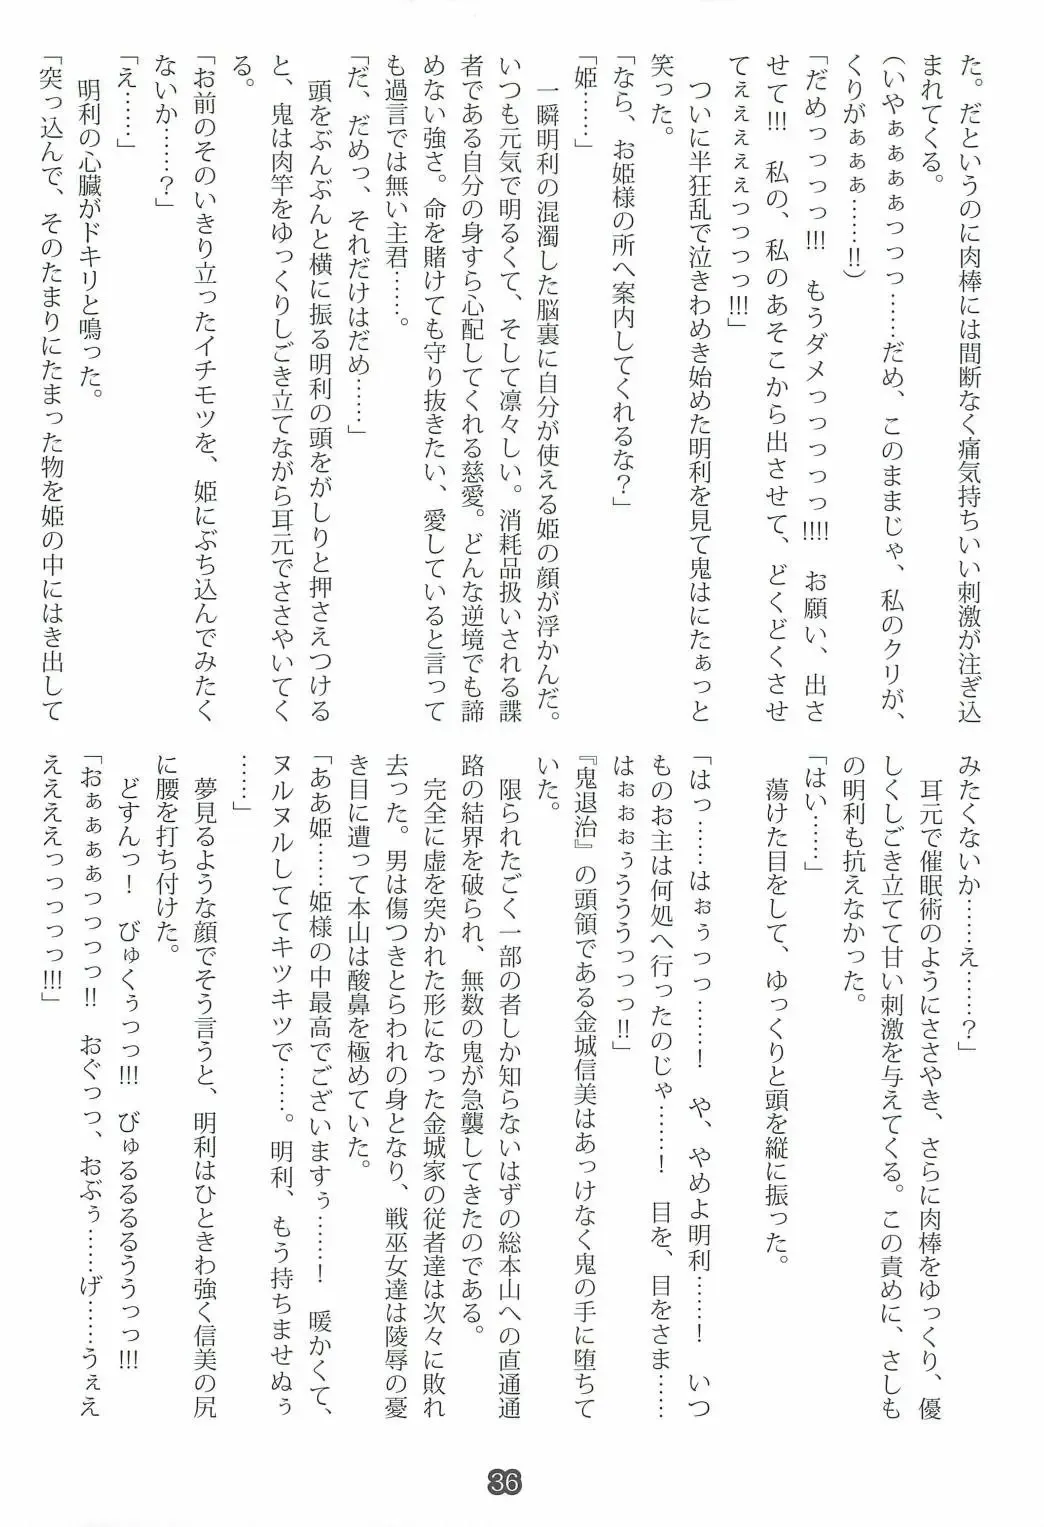 た。だというのに肉棒には間断なく痛気持ちいい刺激が注ぎ込
まれてくる。
(いやぁぁぁぁっっっ……だめ、このままじゃ、私のクリが、
くりがぁぁぁ……!!)
「だめっっっっ!!!　もうダメっっっっっ!!!!　お願い、出さ
せて!!!　私の、私のあそこから出させて、どくどくさせ
てぇぇぇぇぇっっっっ!!!」
　ついに半狂乱で泣きわめき始めた明利を見て鬼はにたぁっと
笑った。
「なら、お姫様の所へ案内してくれるな?」
「姫……」
　一瞬明利の混濁した脳裏に自分が使える姫の顔が浮かんだ。
いつも元気で明るくて、そして凛々しい。消耗品扱いされる諜
者である自分の身すら心配してくれる慈愛。どんな逆境でも諦
めない強さ。命を賭けても守り抜きたい、愛していると言って
も過言では無い主君……。
「だ、だめっ、それだけはだめ……」
　頭をぶんぶんと横に振る明利の頭をがしりと押さえつける
と、鬼は肉竿をゆっくりしごき立てながら耳元でささやいてく
る。
「お前のそのいきり立ったイチモツを、姫にぶち込んでみたく
ないか……?」
「え……」
　明利の心臓がドキリと鳴った。
「突っ込んで、そのたまりにたまった物を姫の中にはき出して
みたくないか……え……?」
　耳元で催眠術のようにささやき、さらに肉棒をゆっくり、優
しくしごき立てて甘い刺激を与えてくる。この責めに、さしも
の明利も抗えなかった。
「はい……」
　蕩けた目をして、ゆっくりと頭を縦に振った。
「はっ……はぉぅっっ……!　や、やめよ明利……!　いつ
ものお主は何処へ行ったのじゃ……!　目を、目をさま……
はぉぉぉぅうううっっっ!!」
『鬼退治』の頭領である金城信美はあっけなく鬼の手に堕ちて
いた。
　限られたごく一部の者しか知らないはずの総本山への直通通
路の結界を破られ、無数の鬼が急襲してきたのである。
　完全に虚を突かれた形になった金城家の従者達は次々に敗れ
去った。男は傷つきとらわれの身となり、戦巫女達は陵辱の憂
き目に遭って本山は酸鼻を極めていた。
「ああ姫……姫様の中最高でございますぅ……!　暖かくて、
ヌルヌルしててキツキツで……。明利、もう持ちませぬぅ
……」
　夢見るような顔でそう言うと、明利はひときわ強く信美の尻
に腰を打ち付けた。
　どすんっ!　びゅくぅっっ!!!　びゅるるるるううっっ!!!
「おぁぁぁぁっっっっ!!　おぐっっ、おぶぅ……げ……うぇえ
ええええっっっっっ!!!」
36